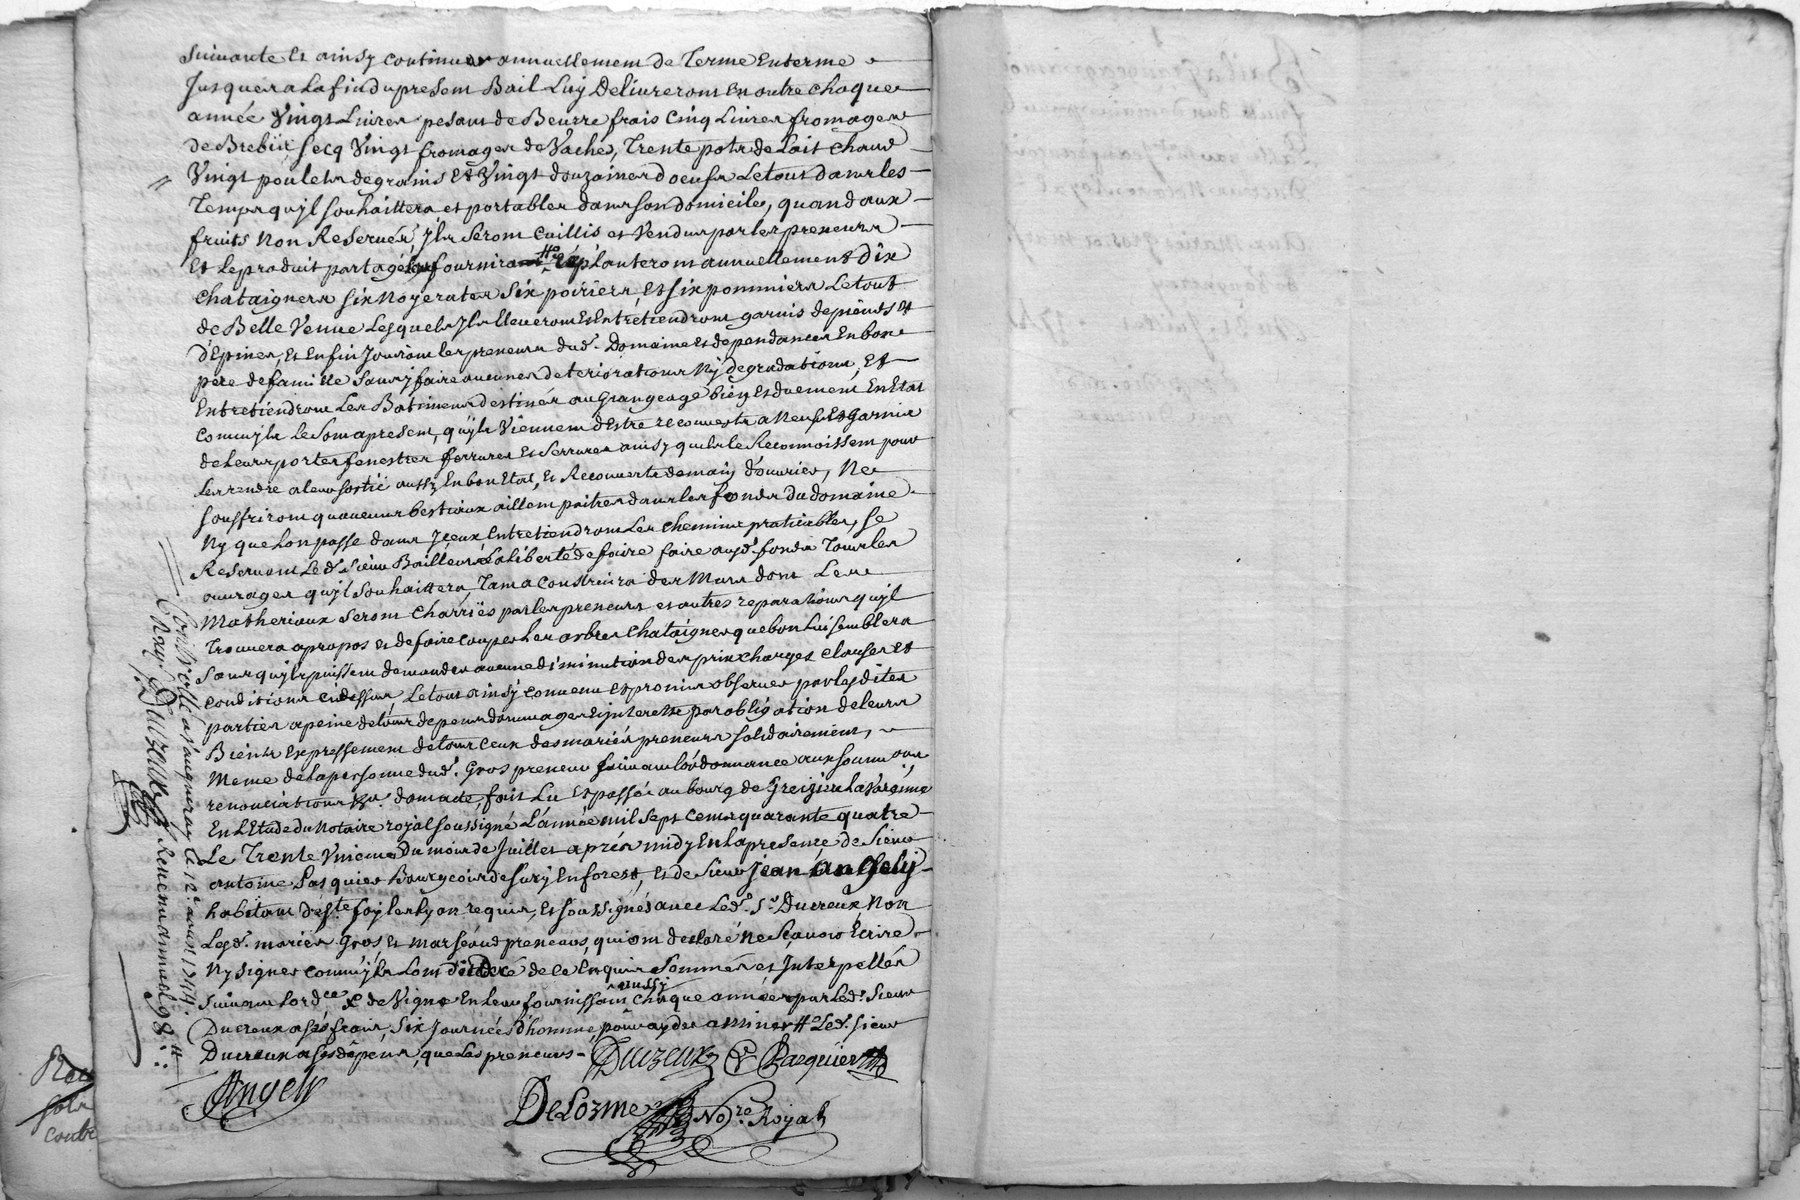 suivante et ainsy continuer annuellement de Terme en terme
Jusques a La fin du present Bail Luy Delivreront en outre chaque
année Vingt Livres pesant de Beurre frais Cinq Livres fromages
de Brebis secq Vingt fromages de Vache, Trente pots de Lait chaud
Vingt poulets de grains et Vingt douzaines d'oeufs Le tout dans les
Temps qu'jl souhaittera et portables dans son domicile, quand aux
fruits Non Reservés, jls seront cuillis et Vendus par les preneurs
Et Le produit partagé planteront annuellement dix
chataigners six Noyers six poiriers, et six pommiers Le tout
de Belle Venue Lesquels jls Eleveront et Entretiendront garnis de pieuds et
d'Epines, et Enfin Jouiront les preneurs dud. Domaine et dependances En bon
pere de famille sans y faire aucunes deteriorations Ny degradations, Et
Entretiendront Les Batimens destinés au Grangeage bien et duement En Etat
comm'jls Le sont a present, qu'jls Viennent d'Estre recouverts a Neuf et Garnis
de Leurs portes fenestres ferrures et serrures ainsy qu'jls le Reconnoissent pour
Les rendre a leur sortië aussy En bon Etat, et Recouverts de main d'ouvrier, Ne
souffriront qu'aucuns bestiaux aillent paitre dans les fonds du domaine
Ny que Lon passe dans jceux Entretiendront Les chemins praticables, se
Reservant Led. sieur Bailleur La liberté de faire faire auxd. fonds Tous les
ouvrages qu'jl souhaittera, Tant a Construire des Murs dont Les
Matheriaux seront Charriës par les preneurs et autres reparations qu'jl
Trouvera a propos et de faire couper Les arbres chataigners que bon Lui semblera
sans qu'jls puissent demander aucune diminution des prix charges clauses et
conditions cidessus, Le tout ainsy convenu et promis observer par lesdites
parties a peine de tous depens dommages et jnterets par obligation de leurs
Biens Expressement de tous ceux des mariés preneurs solidairement,
Meme de la personne dud. Gros preneur suivant l'ordonnance aux soumissions
renonciations &a. dont acte, fait Lu et passé au bourg de Greizieu la Varenne
En L'Etude du Notaire royal soussigné L'année mil sept cens quarante quatre
Le Trente Unieme du mois de Juillet après midy En la presence de sieur
antoine Pasquier Bourgeois de Sury En forest, et de sieur jean Angely
habitant de ste. foy les Lyon requis, et soussignés avec Led. sr. Ducreux Non
Lesd. mariés Gros, et Marseaud preneurs, qui ont declaré Ne sçavoir Ecrire
Ny signer comm'jls L'ont de ce Enquis sommés et Jnterpellés
suivant Lordce X de Vigne En Leur fournissant aussy chaque année par Led. sieur
Ducreux a ses frais, six Journées d'homme pour ayder a miner # Led. sieur
Ducreux a ses depens, que Les preneurs
Ducreux Pacquier
Angely
DeLorme Nore. Royal
Controllé a Vaugneray Le 12e. aoust 1744.